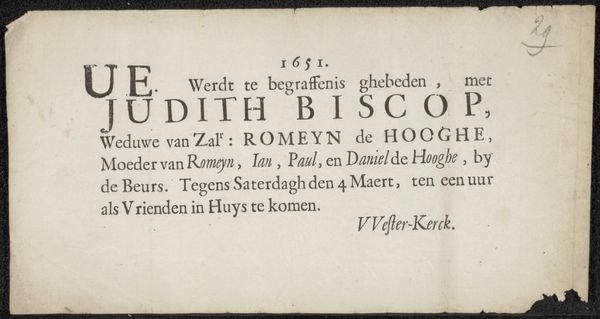 29
1651.
UE. Werdt te begraffenis ghebeden, met
JUDITH BISCOP,
Weduwe van Zalr: ROMEYN de HOOGHE,
Moeder van Romeyn, Ian, Paul, en Daniel de Hooghe, by
de Beurs. Tegens Saterdagh den 4 Maert, ten een uur
als Vrienden in Huys te komen.
VVester-Kerck.